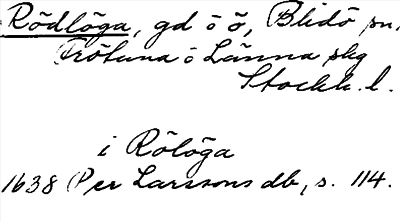 Rödlöga, gd o ö, Blidö sn,
Frötuna o Länna skg
Stockh. l.
i Rölöga
1638 Per Larssons db, s. 114.